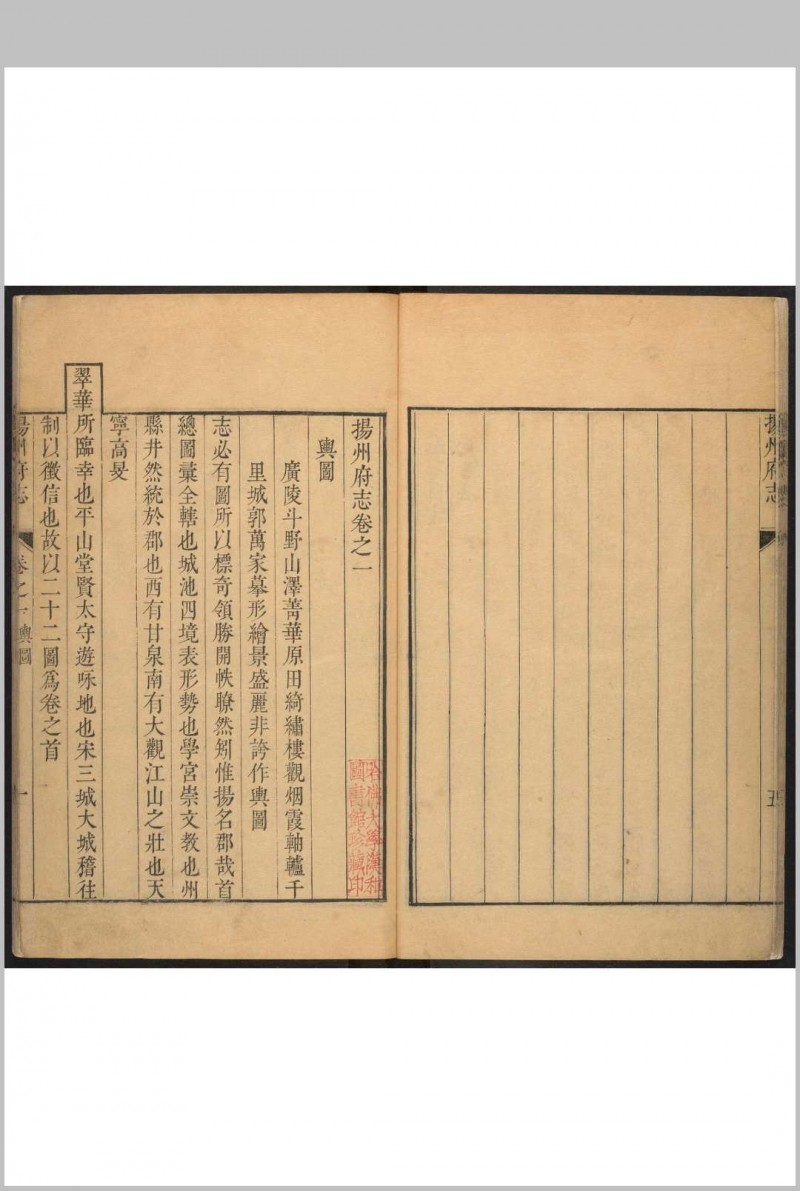 揚州府志
五
揚州府志卷之一
輿圖
廣陵斗野山澤菁華原田綺繡樓觀烟霞軸轤千
里城郭萬家摹形繪景盛麗非誇作輿圖
志必有圖所以標奇領勝開帙瞭然矧惟揚名郡哉首
總圖彙全轄也城池四境表形勢也學宮崇文教也州
縣井然統於郡也西有甘泉南有大觀江山之壯也天
寧高旻
翠華所臨幸也平山堂賢太守遊咏地也宋三城大城稽往
制以徵信也故以二十二圖爲卷之首
揚州府志
卷之一輿圖
一
哈佛大學漢和
圖書館珍藏印